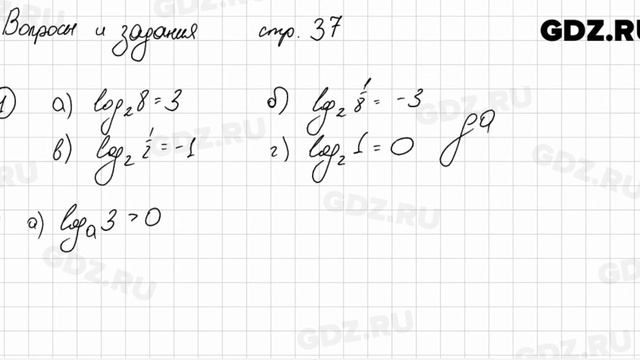 Вопросы и задания стр. 37
GDZ.RU
1) а) log₂8=3 б) log₂ 1/8 = -3
в) log₂ 1/2 = -1 г) log₂1=0 да
а) logₐ3>0
GDZ.RU
GDZ.RU
GDZ.RU
GDZ.RU
GDZ.RU
GDZ.RU